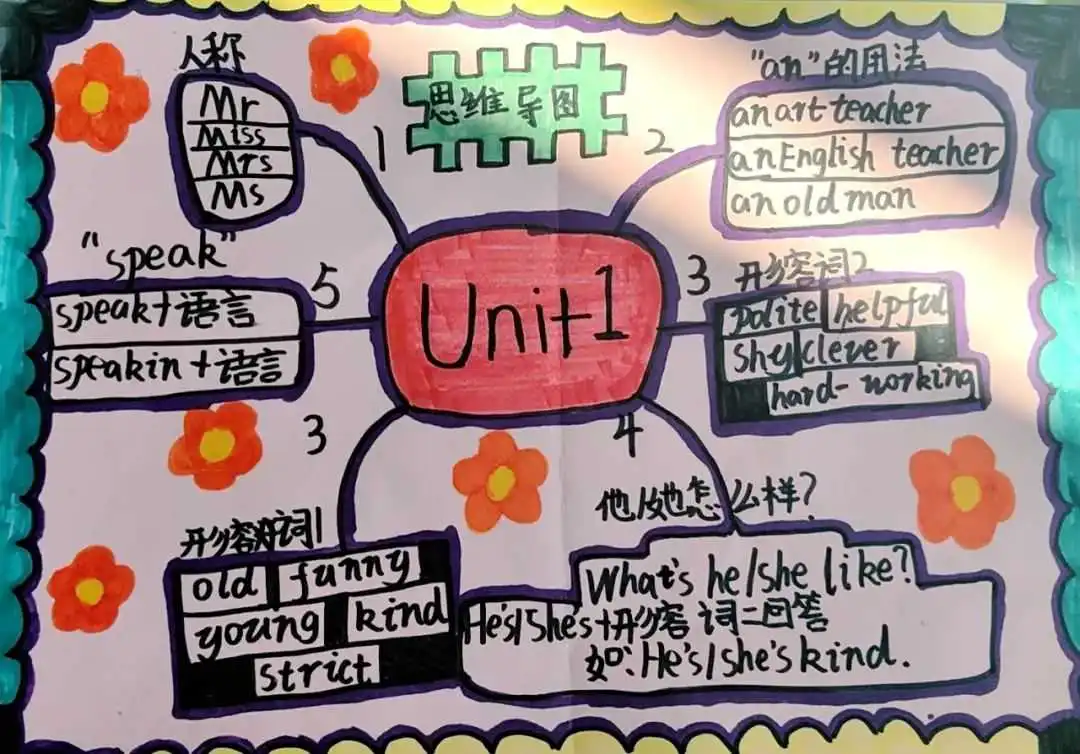 思维导图
人称
Mr
Miss
Mrs
Ms
1
"an"的用法
an art teacher
an English teacher
an old man
2
Unit1
"speak"
speak+语言
speak in+语言
5
3
形容词2
polite helpful
shy clever
hard-working
3
形容词1
old funny
young kind
strict
4
他/她怎么样?
What's he/she like?
He's/She's+形容词=回答
如:He's/she's kind.